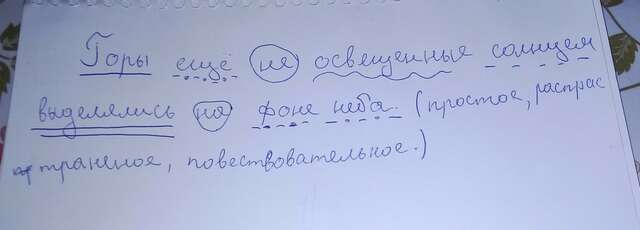 Горы ещё не освещенные солнцем
выделялись на фоне неба. (простое, распрас
траненое, повествовательное.)